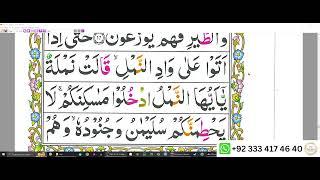 وَالطَّيْرِ فَهُمْ يُوْزَعُوْنَ ﴿۱۷﴾ حَتّٰۤی اِذَاۤ
اَتَوْا عَلٰی وَادِ النَّمْلِ ۙ قَالَتْ نَمْلَةٌ
یّٰۤاَیُّهَا النَّمْلُ ادْخُلُوْا مَسٰكِنَكُمْ ۚ لَا
یَحْطِمَنَّكُمْ سُلَیْمٰنُ وَجُنُوْدُهٗ ۙ وَهُمْ
+92 333 417 46 40